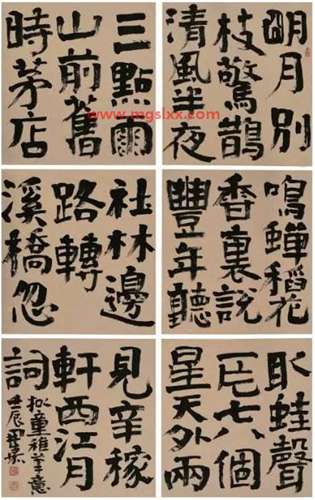 明月別
枝驚鵲
清風半夜
鳴蟬稻花
香裏説
豐年聽
取蛙聲
一片七八個
星天外兩
三點雨
山前舊
時茅店
社林邊
路轉
溪橋忽
見辛稼
軒西江月
詞
拟童稚筆意
壬辰
www.mgslxx.com